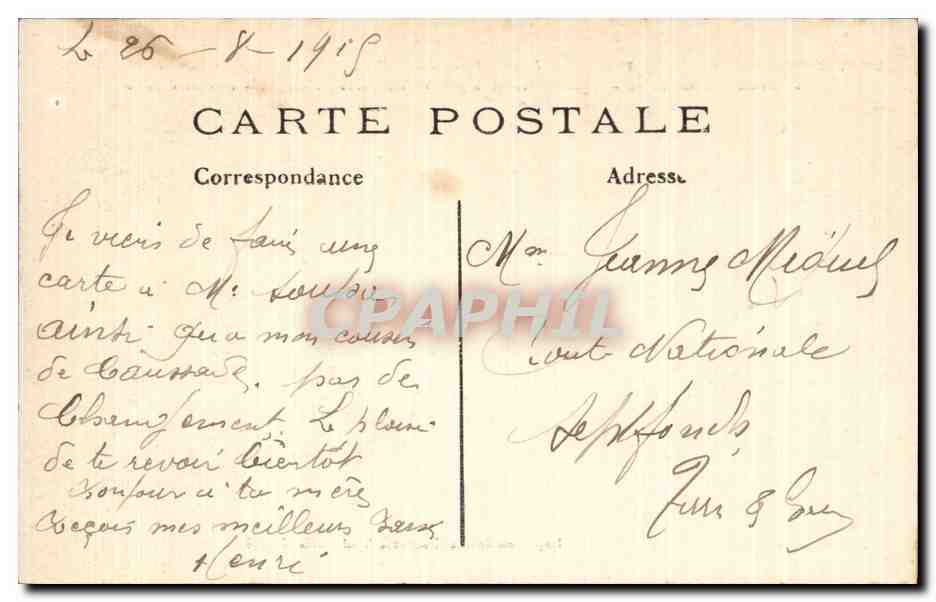 Le 26 - 8 - 1915
CARTE POSTALE
Correspondance
Je viens de faire une
carte à Mr
ainsi qu'a mon cousin
de Caussade. pas de
Changement. Le plaisir
de te revoir bientôt
Bonjour à ta mère
Reçois mes meilleurs
Henri
Adresse
Mm Jeanne Miquel
Route Nationale
Septfonds
Tarn & Gar
CPAPHIL